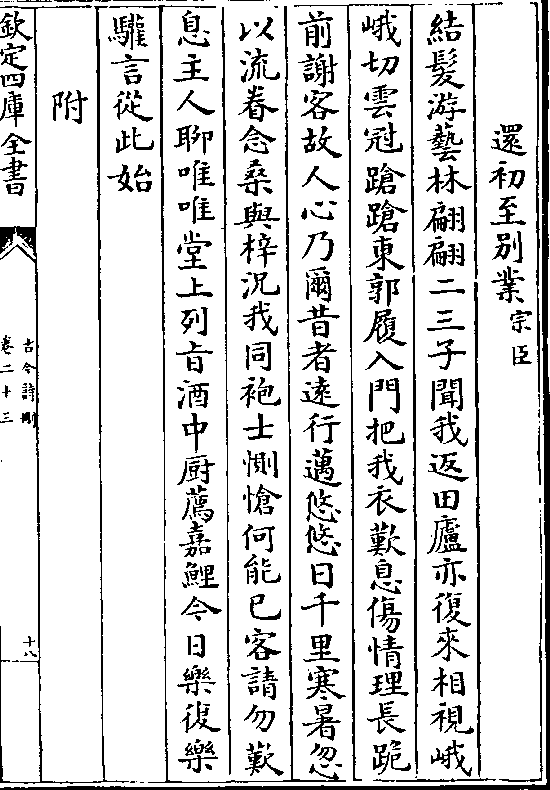 還初至別業宗臣
結髮游藝林翩翩二三子聞我返田廬亦復來相視峨
峨切雲冠蹌蹌東郭履入門把我衣歎息傷情理長跪
前謝客故人心乃爾昔者逺行邁悠悠日千里寒暑忽
以流眷念桑與梓況我同袍士惻愴何能已客請勿歎
息主人聊唯唯堂上列㫖酒中厨薦嘉鯉今日樂復樂
驩言從此始
附
欽定四庫全書
古今詩刪
卷二十三
十八